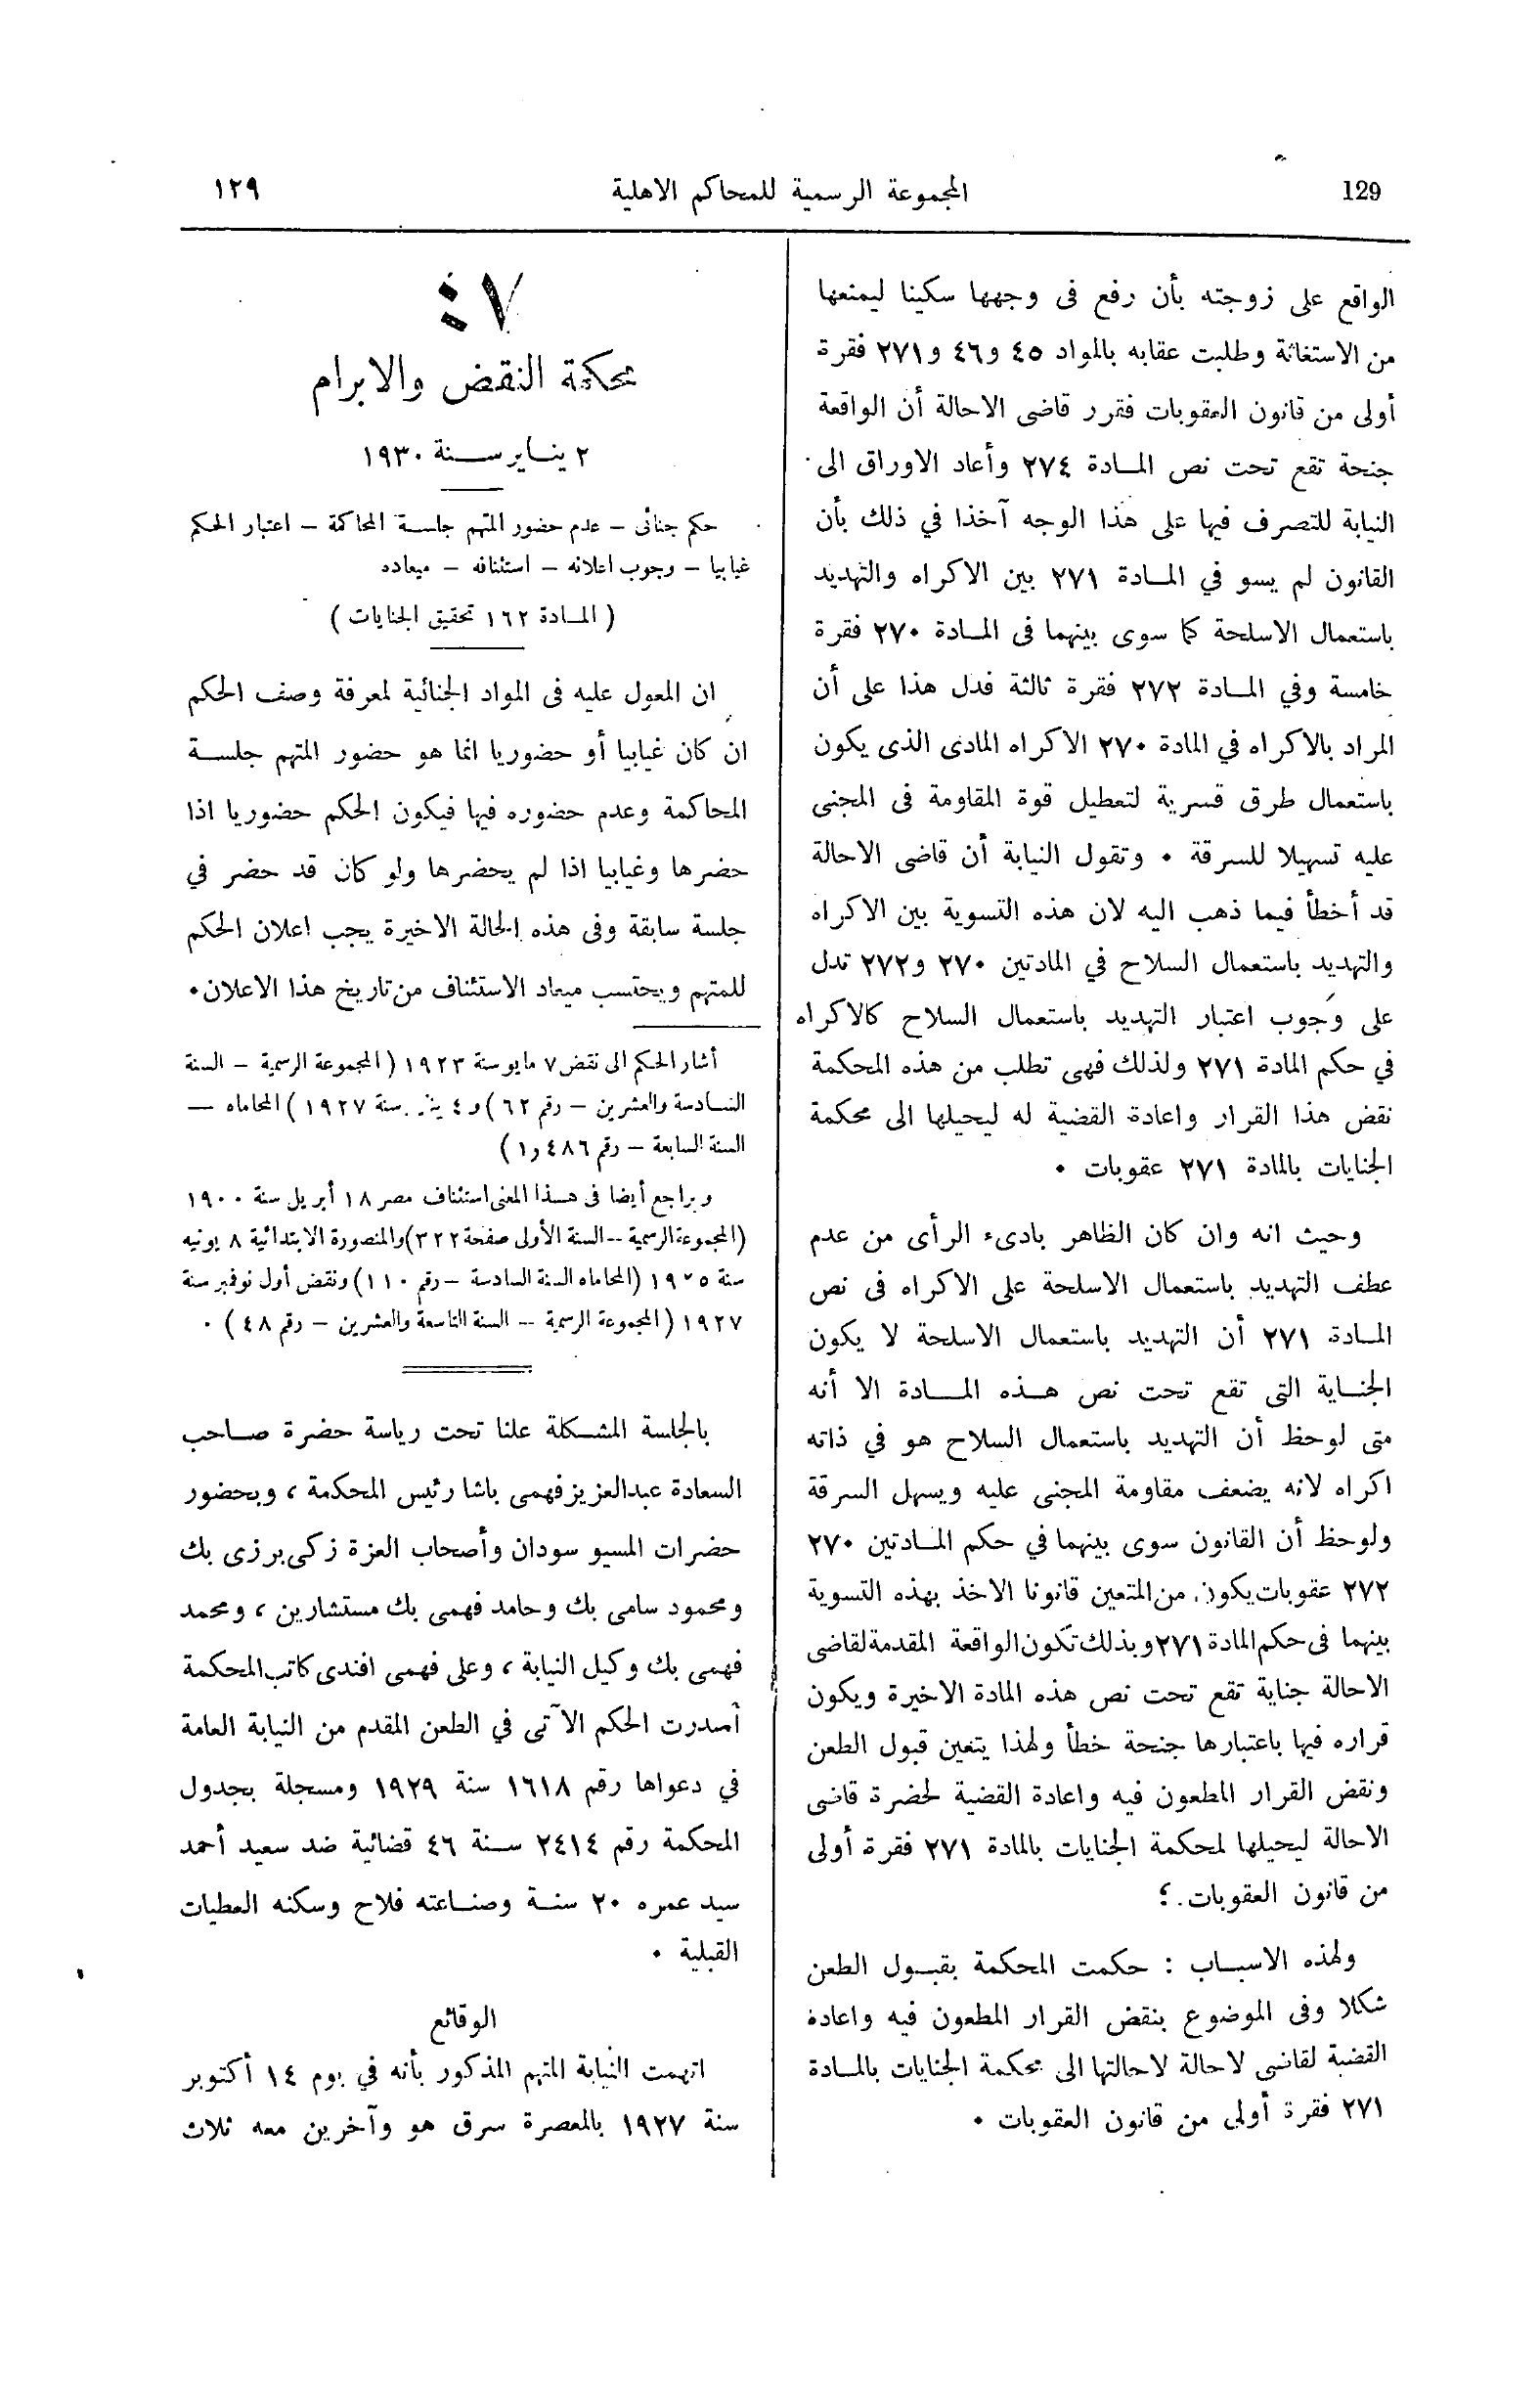 129
المجموعة الرسمية للمحاكم الاهلية
١٢٩
الواقع على زوجته بأن رفع فى وجهها سكينا ليمنعها
من الاستغاثة وطلبت عقابه بالمواد ٤٥ و٤٦ و٢٧١ فقرة
أولى من قانون العقوبات فقرر قاضى الاحالة أن الواقعة
جنحة تقع تحت نص المادة ٢٧٤ وأعاد الاوراق الى
النيابة للتصرف فيها على هذا الوجه آخذا في ذلك بأن
القانون لم يسو في المادة ٢٧١ بين الاكراه والتهديد
باستعمال الاسلحة كما سوى بينهما فى المادة ٢٧٠ فقرة
خامسة وفي المادة ٢٧٢ فقرة ثالثة فدل هذا على أن
المراد بالاكراه في المادة ٢٧٠ الاكراه المادى الذى يكون
باستعمال طرق قسرية لتعطيل قوة المقاومة فى المجنى
عليه تسهيلا للسرقة • وتقول النيابة أن قاضى الاحالة
قد أخطأ فيما ذهب اليه لان هذه التسوية بين الاكراه
والتهديد باستعمال السلاح في المادتين ٢٧٠ و٢٧٢ تدل
على وجوب اعتبار التهديد باستعمال السلاح كالاكراه
في حكم المادة ٢٧١ ولذلك فهى تطلب من هذه المحكمة
نقض هذا القرار واعادة القضية له ليحيلها الى محكمة
الجنايات بالمادة ٢٧١ عقوبات •
وحيث انه وان كان الظاهر بادىء الرأى من عدم
عطف التهديد باستعمال الاسلحة على الاكراه فى نص
المادة ٢٧١ أن التهديد باستعمال الاسلحة لا يكون
الجناية التى تقع تحت نص هذه المادة الا أنه
متى لوحظ أن التهديد باستعمال السلاح هو في ذاته
اكراه لانه يضعف مقاومة المجنى عليه ويسهل السرقة
ولوحظ أن القانون سوى بينهما في حكم المادتين ٢٧٠
٢٧٢ عقوبات يكون من المتعين قانونا الاخذ بهذه التسوية
بينهما فى حكم المادة ٢٧١ وبذلك تكون الواقعة المقدمة لقاضى
الاحالة جناية تقع تحت نص هذه المادة الاخيرة ويكون
قراره فيها باعتبارها جنحة خطأ ولهذا يتعين قبول الطعن
ونقض القرار المطعون فيه واعادة القضية لحضرة قاضى
الاحالة ليحيلها لمحكمة الجنايات بالمادة ٢٧١ فقرة أولى
من قانون العقوبات.
ولهذه الاسباب : حكمت المحكمة بقبول الطعن
شكلا وفى الموضوع بنقض القرار المطعون فيه واعادة
القضية لقاضى لاحالة لاحالتها الى محكمة الجنايات بالمادة
٢٧١ فقرة أولى من قانون العقوبات •
محكمة النقض والابرام
٢ يناير سنة ١٩٣٠
حكم جنائى – عدم حضور المتهم جلسة المحاكمة – اعتبار الحكم
غيابيا – وجوب اعلانه – استئنافه – ميعاده
( المادة ١٦٢ تحقيق الجنايات )
ان المعول عليه فى المواد الجنائية لمعرفة وصف الحكم
ان كان غيابيا أو حضوريا انما هو حضور المتهم جلسة
المحاكمة وعدم حضوره فيها فيكون الحكم حضوريا اذا
حضرها وغيابيا اذا لم يحضرها ولو كان قد حضر في
جلسة سابقة وفى هذه الحالة الاخيرة يجب اعلان الحكم
للمتهم ويحتسب ميعاد الاستئناف من تاريخ هذا الاعلان•
أشار الحكم الى نقض ٧ مايو سنة ١٩٢٣ ( المجموعة الرسمية – السنة
السادسة والعشرين – رقم ٦٢ ) و ٤ سنة ١٩٢٧ ) المحاماه –
السنة السابعة – رقم ٤٨٦ و١ )
ويراجع أيضا فى هذا المعنى استئناف مصر ١٨ أبريل سنة ١٩٠٠
(المجموعة الرسمية – السنة الأولى صفحة ٣٢٢) والمنصورة الابتدائية ٨ يونيه
سنة ١٩٢٥ (المحاماه السنة السادسة – رقم ١١٠) ونقض أول نوفمبر سنة
١٩٢٧ ( المجموعة الرسمية – السنة التاسعة والعشرين – رقم ٤٨ ) •
بالجلسة المشكلة علنا تحت رياسة حضرة صاحب
السعادة عبدالعزيز فهمى باشا رئيس المحكمة ، وبحضور
حضرات المسيو سودان وأصحاب العزة زكى برزى بك
ومحمود سامى بك وحامد فهمى بك مستشارين ، ومحمد
فهمى بك وكيل النيابة ، وعلى فهمى افندى كاتب المحكمة
أصدرت الحكم الآتى في الطعن المقدم من النيابة العامة
في دعواها رقم ١٦١٨ سنة ١٩٢٩ ومسجلة بجدول
المحكمة رقم ٢٤١٤ سنة ٤٦ قضائية ضد سعيد أحمد
سيد عمره ٢٠ سنة وصناعته فلاح وسكنه العطيات
القبلية •
الوقائع
اتهمت النيابة المتهم المذكور بأنه في يوم ١٤ أكتوبر
سنة ١٩٢٧ بالمعصرة سرق هو وآخرين معه ثلاث